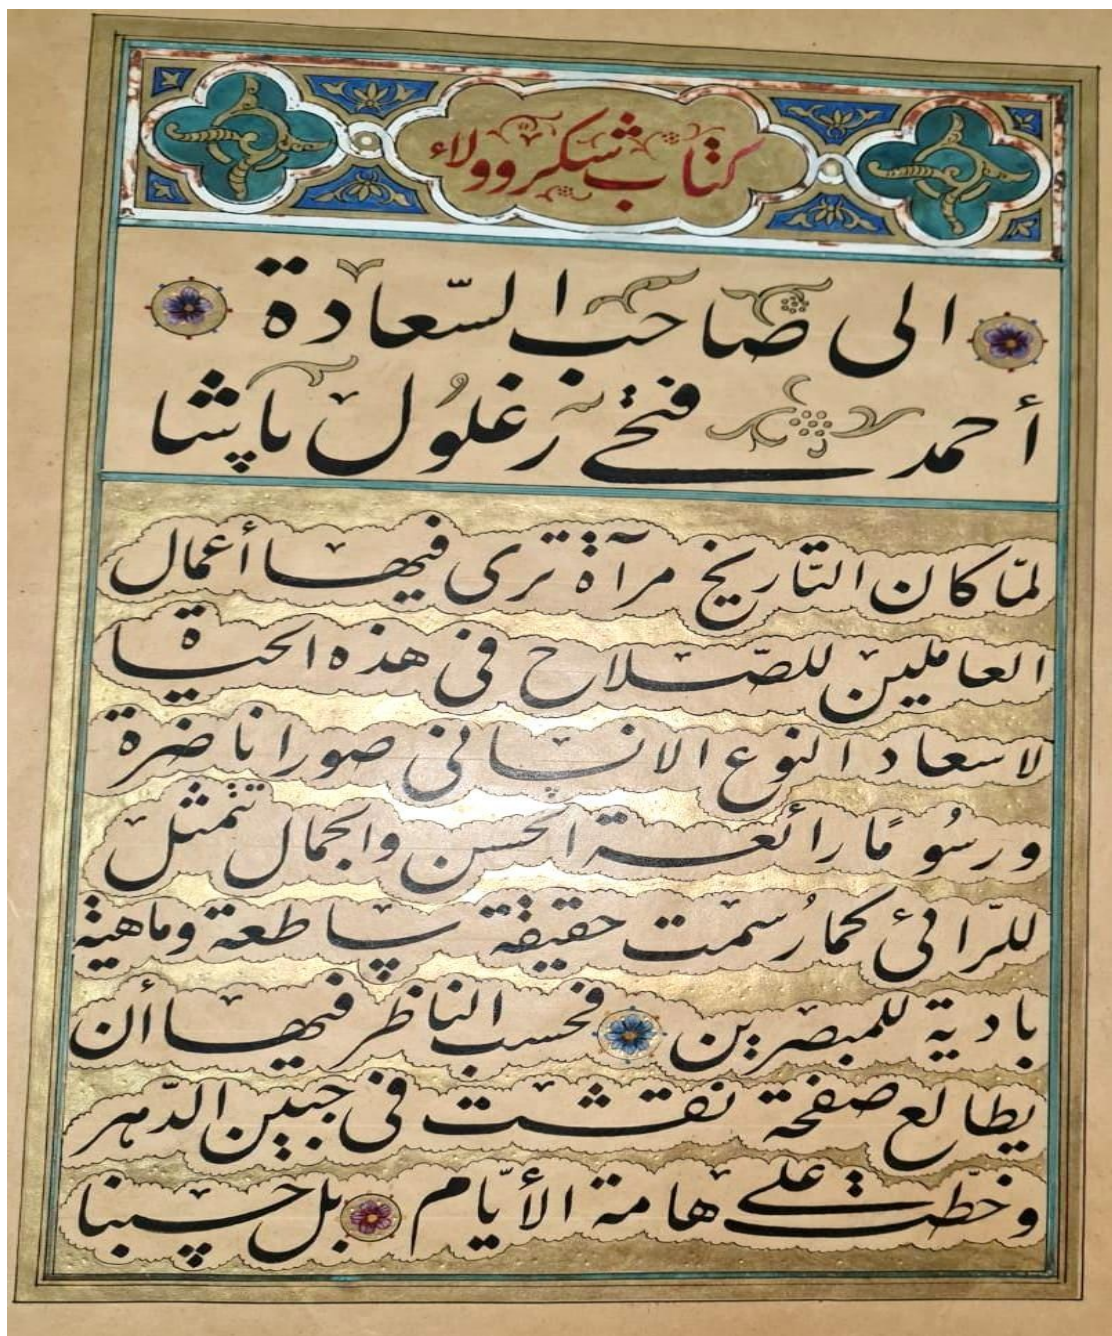 كتاب شكر وولاء
الى صاحب السعادة
أحمد فتحي زغلول باشا
لمّا كان التّاريخ مرآة ترى فيها أعمال
العاملين للصّلاح فى هذه الحياة
لاسعاد النوع الانسانى صورا ناضرة
ورسُومًا رائعة الحسن والجمال تتمثل
للرّائى كما رُسمت حقيقة ساطعة وماهية
بادية للمبصرين فحسب الناظر فيها أن
يطالع صفحة نقشت فى جبين الدّهر
وخطّت على هامة الأيّام بل حسبنا